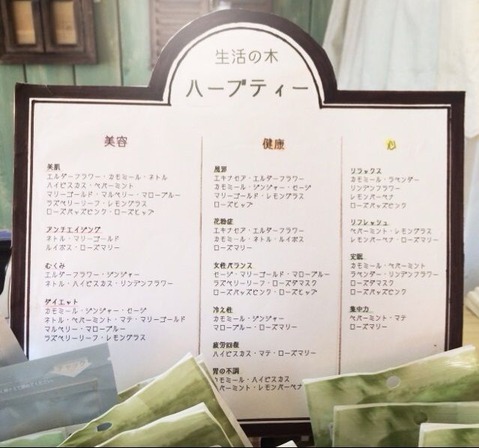 生活の木
ハーブティー
美容
美肌
エルダーフラワー・カモミール・ネトル
ハイビスカス・ペパーミント
マリーゴールド・マルベリー・マローブルー
ラズベリーリーフ・レモングラス
ローズバッズピンク・ローズヒップ
アンチエイジング
ネトル・マリーゴールド
ルイボス・ローズマリー
むくみ
エルダーフラワー・ジンジャー
ネトル・ハイビスカス・リンデンフラワー
ダイエット
カモミール・ジンジャー・セージ
ネトル・ペパーミント・マテ・マリーゴールド
マルベリー・マローブルー
ラズベリーリーフ・レモングラス
健康
風邪
エキナセア・エルダーフラワー
カモミール・ジンジャー・セージ
マリーゴールド・レモングラス
ローズヒップ
花粉症
エキナセア・エルダーフラワー
カモミール・ネトル・ルイボス
ローズマリー
女性バランス
セージ・マリーゴールド・マローブルー
ラズベリーリーフ・ローズダマスク
ローズバッズピンク・ローズヒップ
冷え性
カモミール・ジンジャー
マローブルー・ローズマリー
疲労回復
ハイビスカス・マテ・ローズマリー
胃の不調
カモミール・ハイビスカス
ペパーミント・レモンバーベナ
心
リラックス
カモミール・ラベンダー
リンデンフラワー
レモンバーベナ
ローズバッズピンク
リフレッシュ
ペパーミント・レモングラス
レモンバーベナ・ローズマリー
安眠
カモミール・ペパーミント
ラベンダー・リンデンフラワー
ローズダマスク
ローズバッズピンク
集中力
ペパーミント・マテ
ローズマリー